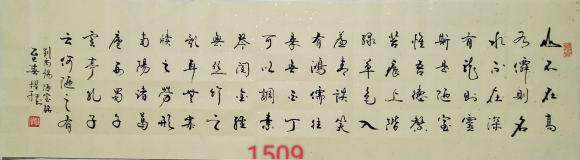 山不在高
有僊則名
水不在深
有龍則靈
斯是陋室
惟吾德馨
苔痕上階
綠草色入
簾青談笑
有鴻儒往
來無白丁
可以調素
琴閱金經
無絲竹之
亂耳無案
牘之勞形
南陽諸葛
廬西蜀子
雲亭孔子
云何陋之有
劉禹錫陋室銘
1509